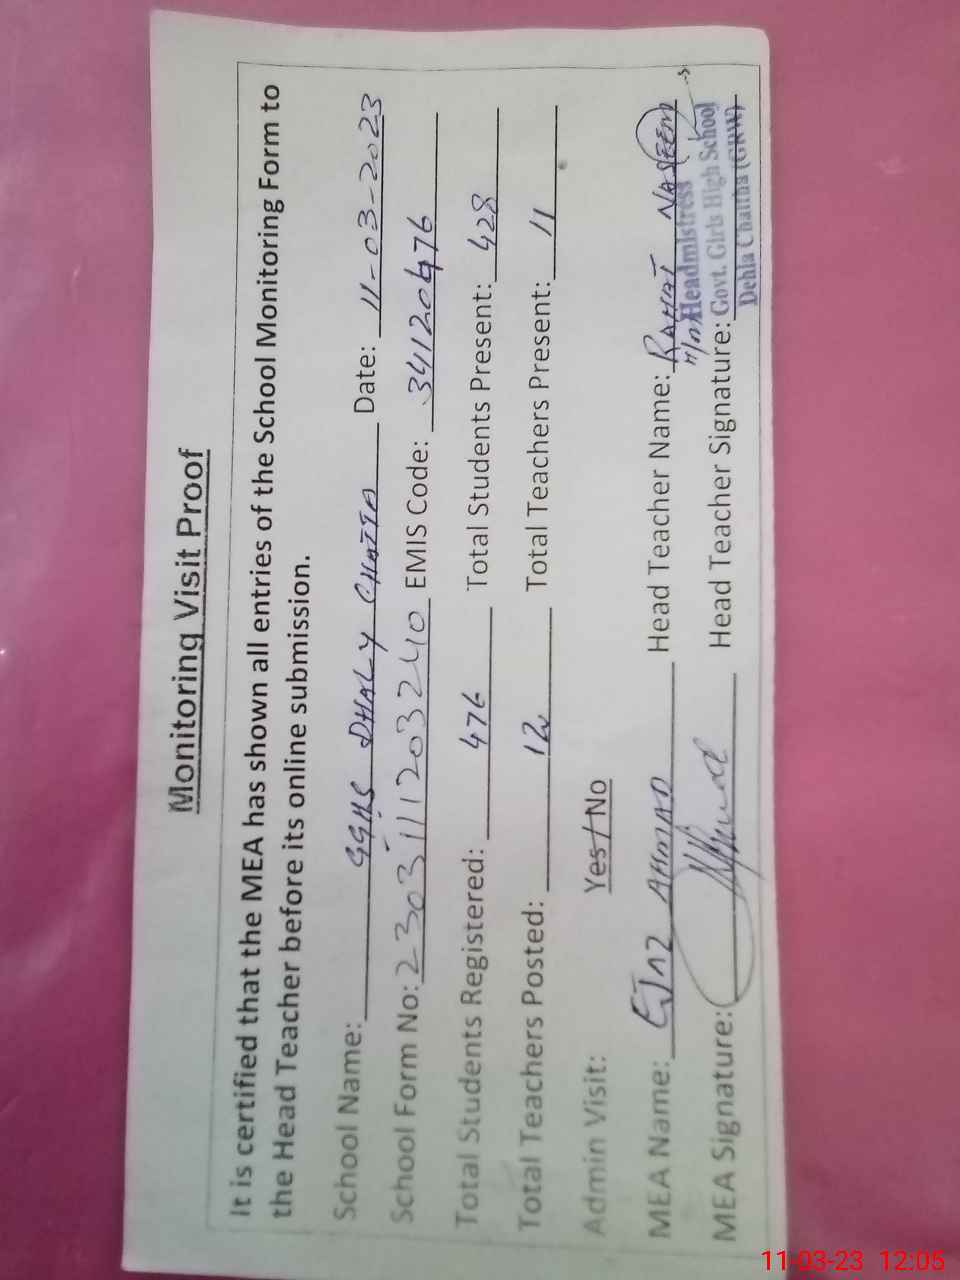 Monitoring Visit Proof
It is certified that the MEA has shown all entries of the School Monitoring Form to
the Head Teacher before its online submission.
School Name: GGHS DHALY CHATTA Date: 11-03-2023
School Form No: 2303111203240 EMIS Code: 34120476
Total Students Registered: 476 Total Students Present: 428
Total Teachers Posted: 12 Total Teachers Present: 11
Admin Visit: Yes/No
MEA Name: EJAZ AHMAD Head Teacher Name: RAHAT NASEEM
Headmistress
MEA Signature: Head Teacher Signature: Govt. Girls High School
Dehla Chattha (GRW)
11-03-23 12:05